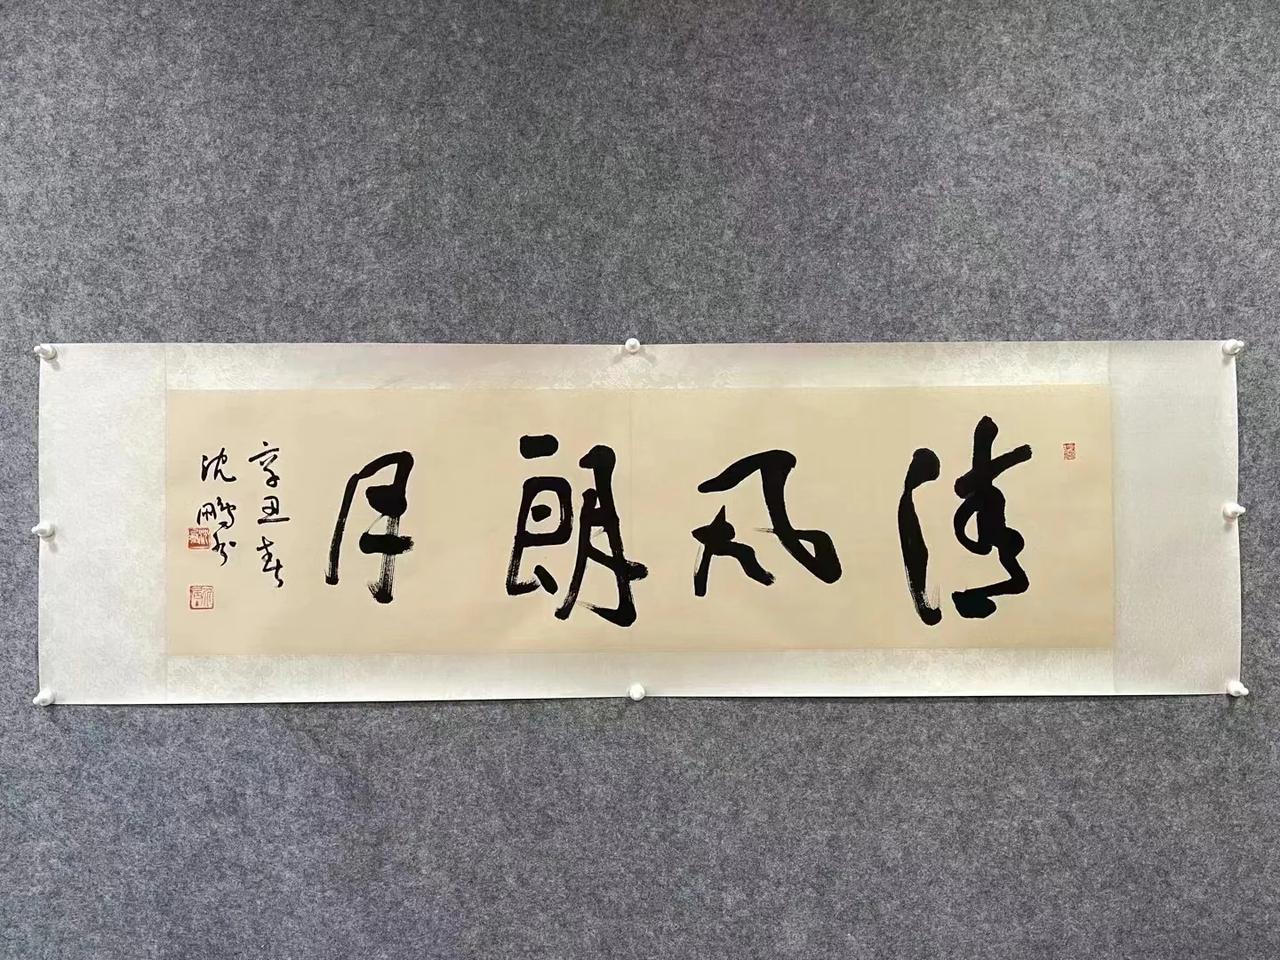 清风朗月
辛丑春
沈鹏书